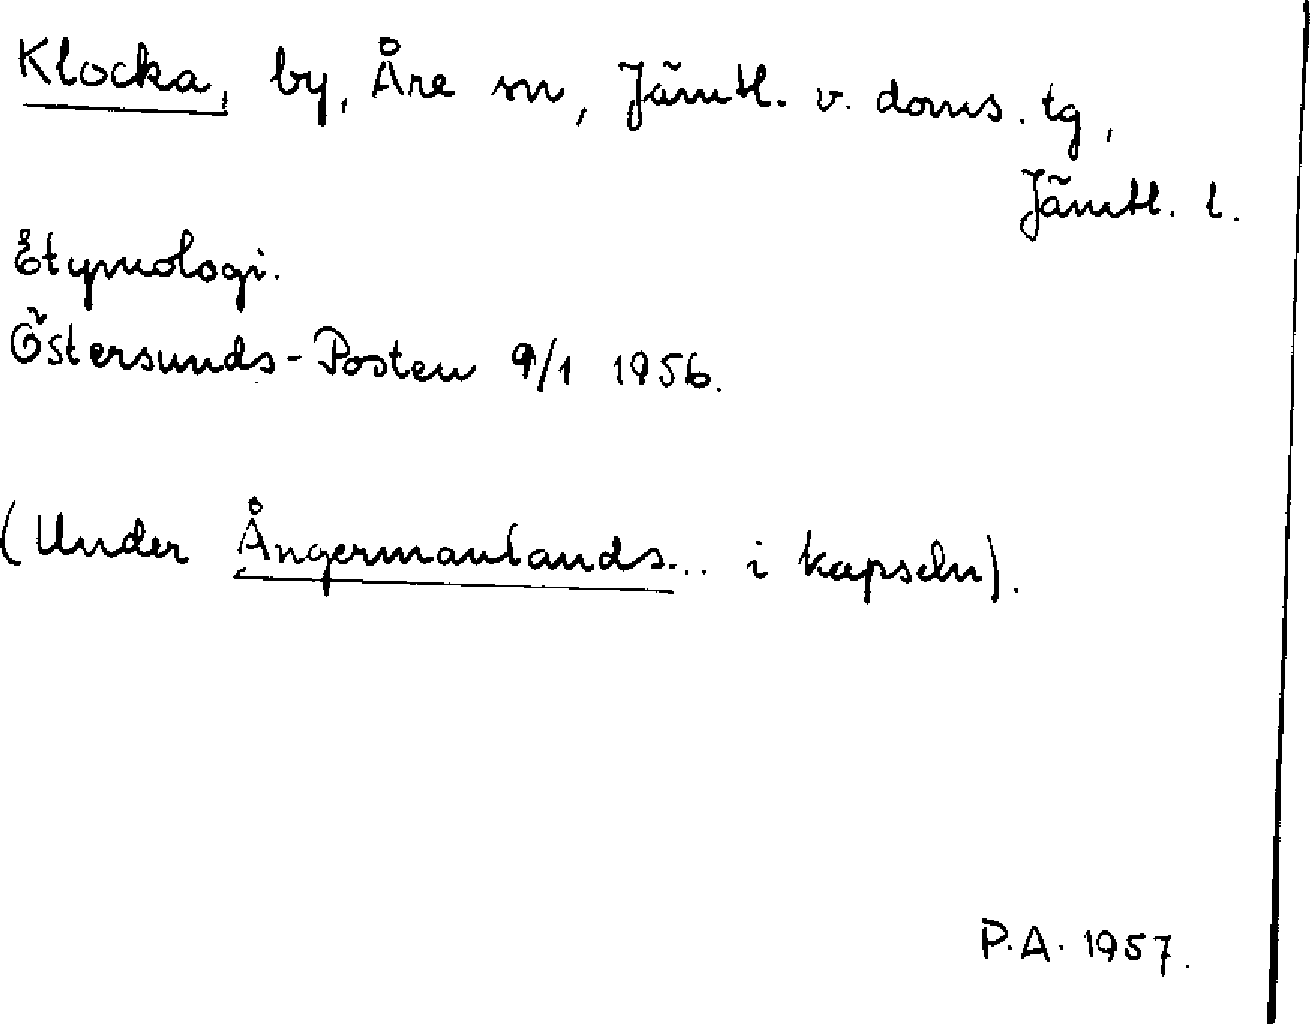 Klocka, by, Åre sn, Jämtl. v. doms. tg,
Jämtl. l.
Etymologi.
Östersunds-Posten 9/1 1956.
(Under Ångermanlands... i kapseln).
P.A. 1957.